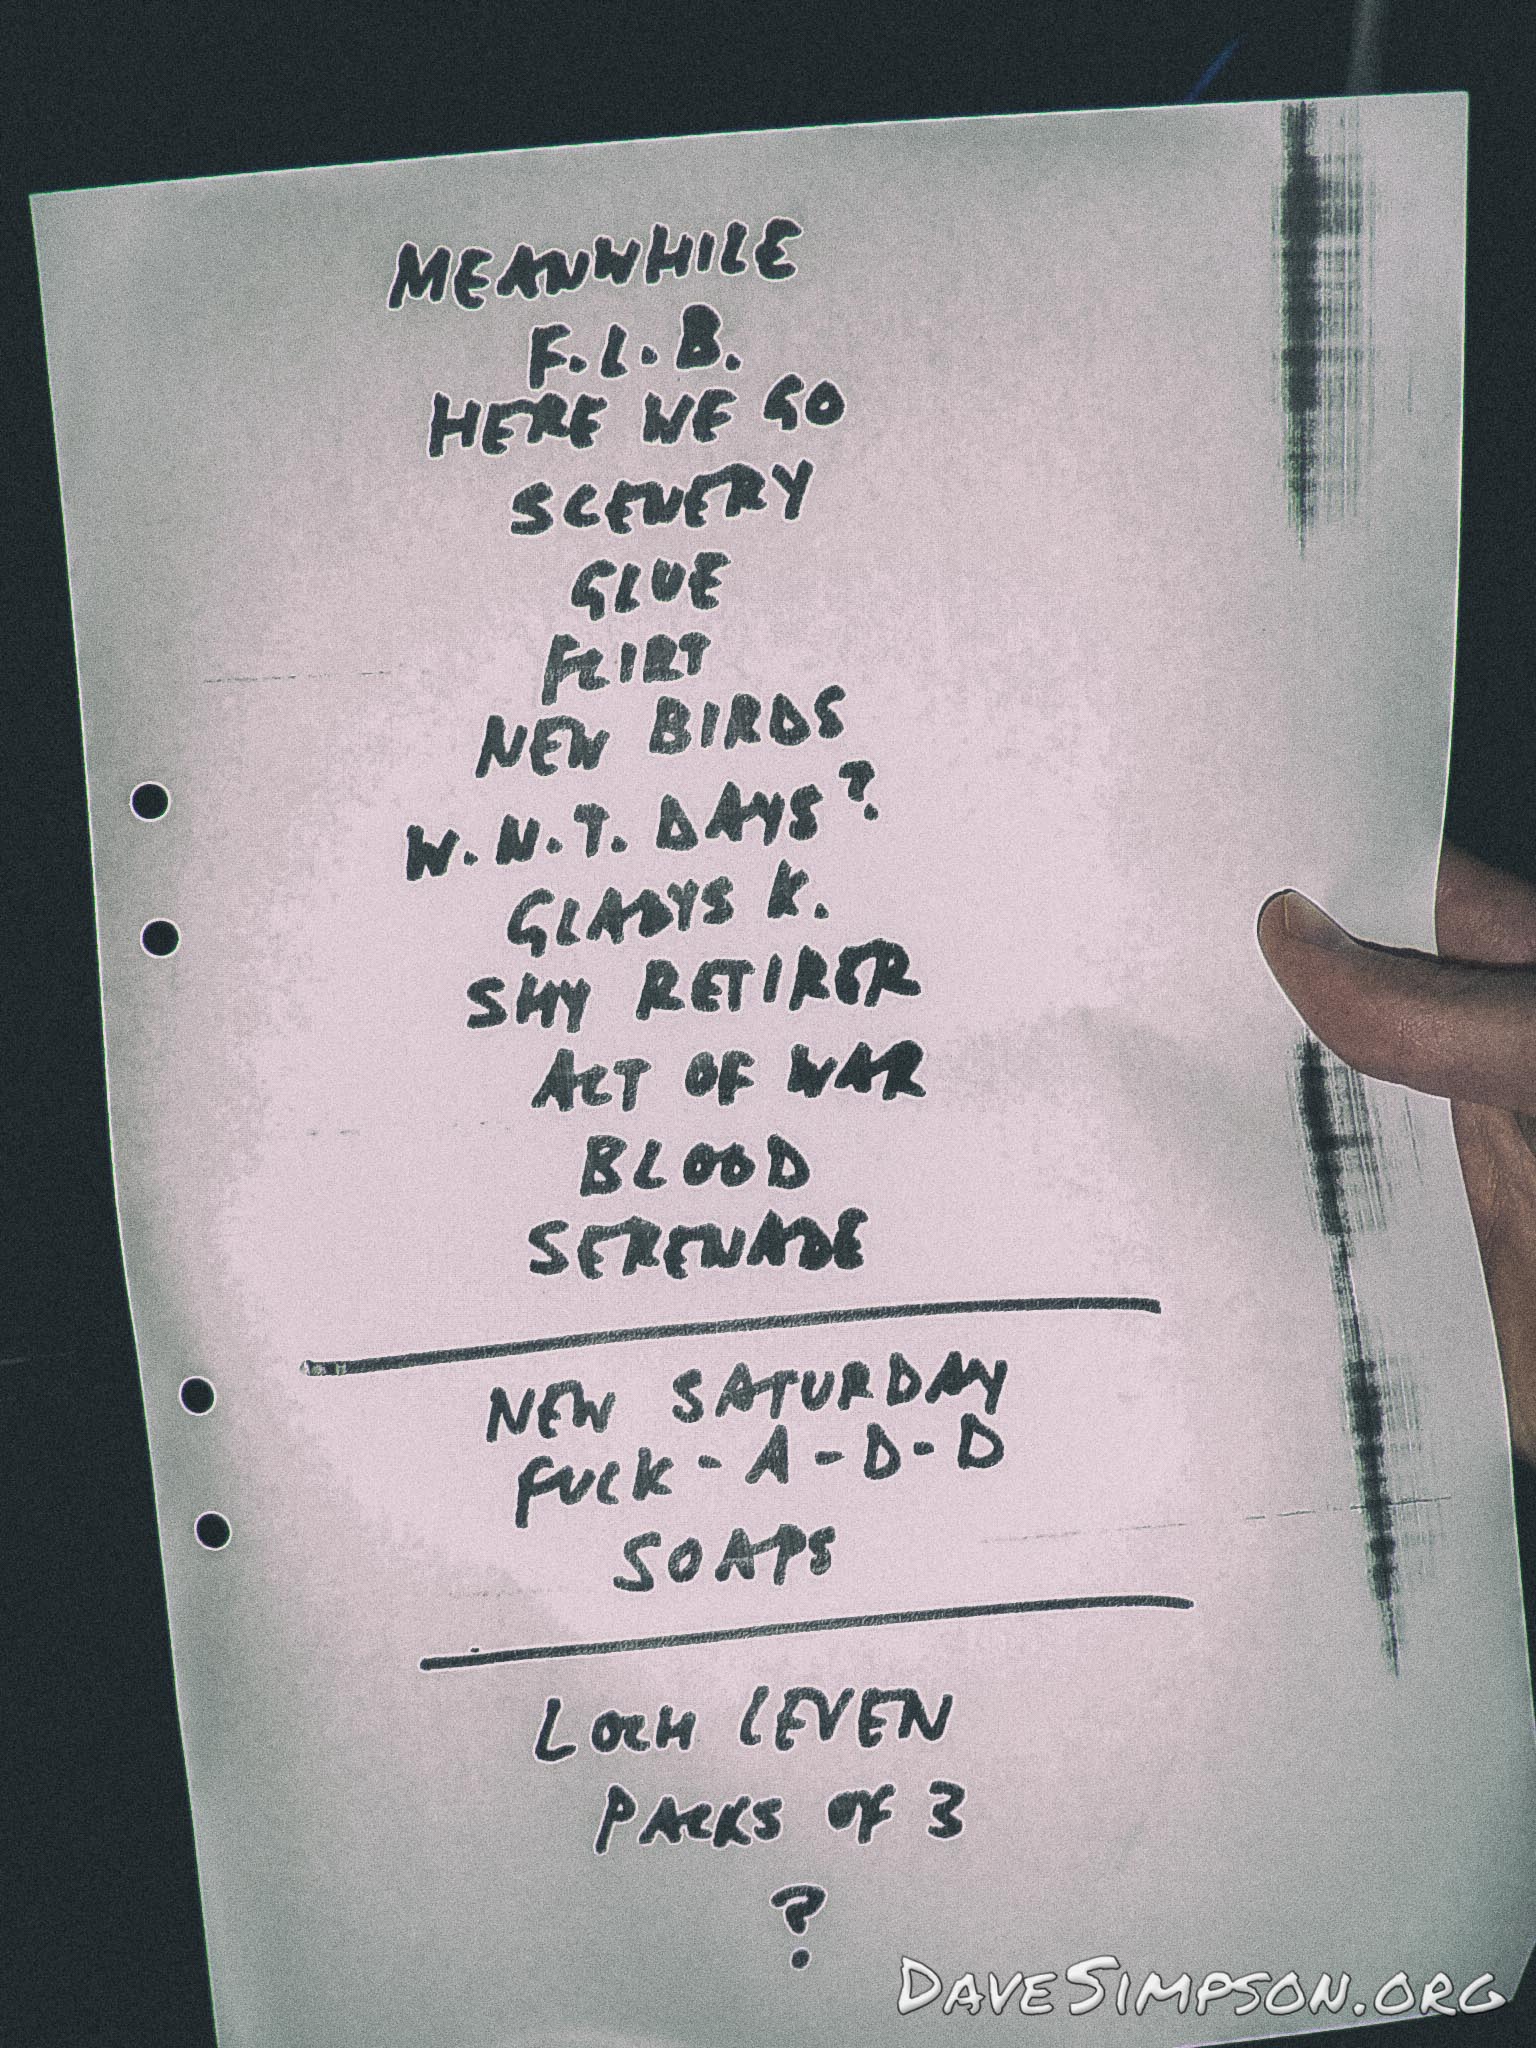 MEANWHILE
F.L.B.
HERE WE GO
SCENERY
GLUE
FLIRT
NEW BIRDS
W.N.T. DAYS?
GLADYS K.
SHY RETIRER
ACT OF WAR
BLOOD
SERENADE
NEW SATURDAY
FUCK-A-D-D
SOAPS
LOCH LEVEN
PACKS OF 3
?
DAVESIMPSON.ORG